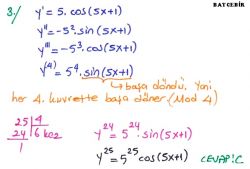 BATGEBİR
3./ y' = 5.cos(5x+1)
y'' = -5².sin(5x+1)
y''' = -5³.cos(5x+1)
y⁽⁴⁾ = 5⁴.sin(5x+1)
başa döndü. Yani
her 4. kuvvette başa döner (Mod 4)
25 | 4
24 | 6 kez
1
y²⁴ = 5²⁴.sin(5x+1)
y²⁵ = 5²⁵cos(5x+1) CEVAP:C